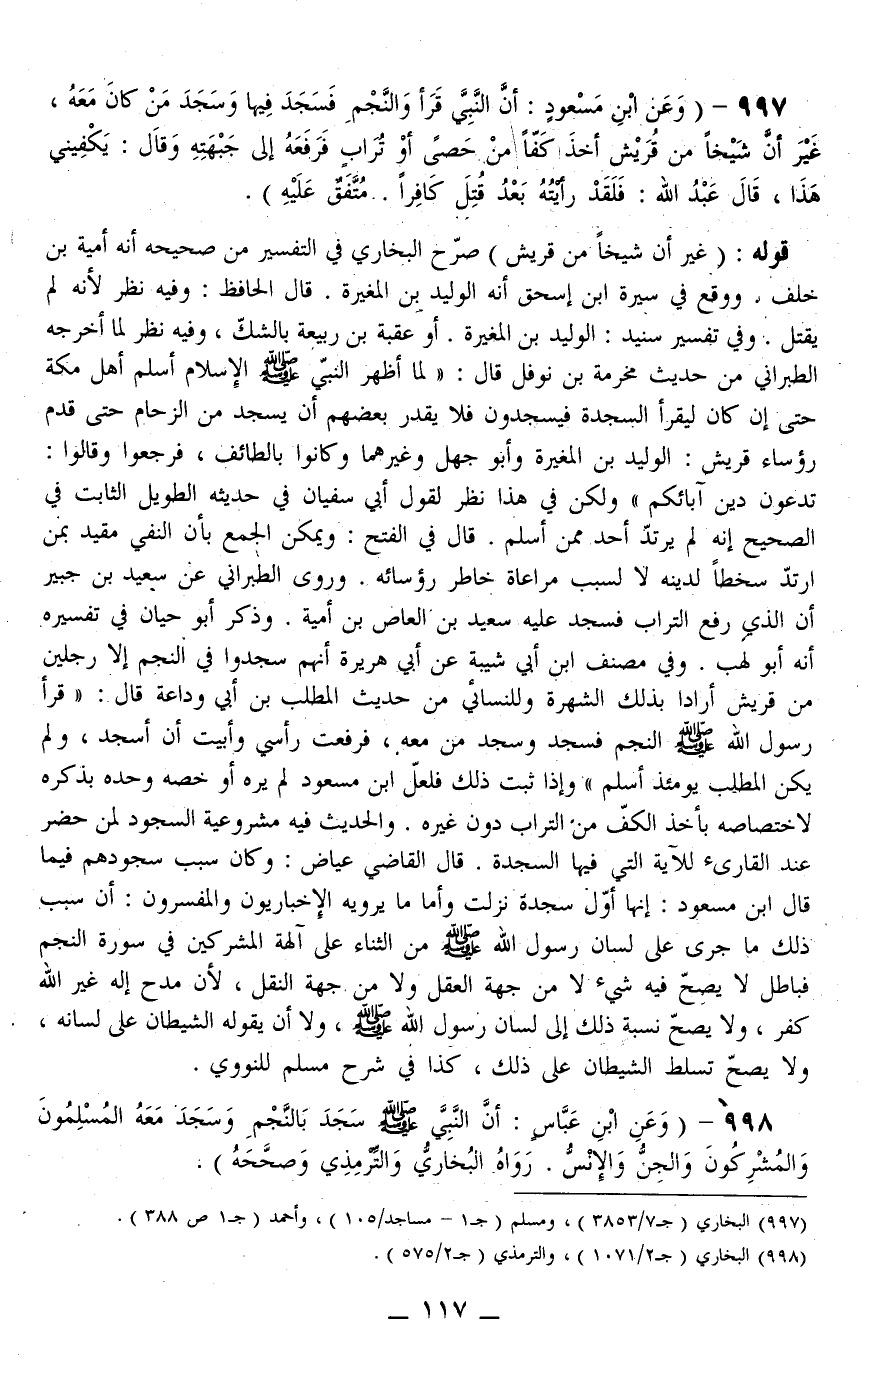 ٩٩٧ – ( وَعَن ابْنِ مَسْعودٍ : أنَّ النَّبِيَّ قَرَأ وَالنَّجْمِ فَسَجَدَ فِيها وَسَجَدَ مَنْ كانَ مَعَهُ ،
غَيْرَ أنَّ شَيْخاً من قُرَيْش أخذَ كَفّاً منْ حَصىً أوْ تُرَابٍ فَرَفَعَهُ إلى جَبْهَتِهِ وَقَالَ : يَكْفِيني
هَذَا ، قَالَ عَبْدُ الله : فَلَقَدْ رأيْتُهُ بَعْدُ قُتِلَ كَافِراً . . مُتَّفَقٌ عَلَيْهِ ) .
قوله : ( غير أن شيخاً من قريش ) صرّح البخاري في التفسير من صحيحه أنه أمية بن
خلف . ووقع في سيرة ابن إسحق أنه الوليد بن المغيرة . قال الحافظ : وفيه نظر لأنه لم
يقتل . وفي تفسير سنيد : الوليد بن المغيرة . أو عقبة بن ربيعة بالشكّ ، وفيه نظر لما أخرجه
الطبراني من حديث مخرمة بن نوفل قال : « لما أظهر النبيّ ﷺ الإسلام أسلم أهل مكة
حتى إن كان ليقرأ السجدة فيسجدون فلا يقدر بعضهم أن يسجد من الزحام حتى قدم
رؤساء قريش : الوليد بن المغيرة وأبو جهل وغيرهما وكانوا بالطائف ، فرجعوا وقالوا :
تدعون دين آبائكم » ولكن في هذا نظر لقول أبي سفيان في حديثه الطويل الثابت في
الصحيح إنه لم يرتدّ أحد ممن أسلم . قال في الفتح : ويمكن الجمع بأن النفي مقيد بمن
ارتدّ سخطاً لدينه لا لسبب مراعاة خاطر رؤسائه . وروى الطبراني عن سعيد بن جبير
أن الذي رفع التراب فسجد عليه سعيد بن العاص بن أمية . وذكر أبو حيان في تفسيره
أنه أبو لهب . وفي مصنف ابن أبي شيبة عن أبي هريرة أنهم سجدوا في النجم إلا رجلين
من قريش أرادا بذلك الشهرة وللنسائي من حديث المطلب بن أبي وداعة قال : « قرأ
رسول الله ﷺ النجم فسجد وسجد من معه ، فرفعت رأسي وأبيت أن أسجد ، ولم
يكن المطلب يومئذ أسلم » وإذا ثبت ذلك فلعلّ ابن مسعود لم يره أو خصه وحده بذكره
لاختصاصه بأخذ الكفّ من التراب دون غيره . والحديث فيه مشروعية السجود لمن حضر
عند القارىء للآية التي فيها السجدة . قال القاضي عياض : وكان سبب سجودهم فيما
قال ابن مسعود : إنها أوّل سجدة نزلت وأما ما يرويه الإخباريون والمفسرون : أن سبب
ذلك ما جرى على لسان رسول الله ﷺ من الثناء على آلهة المشركين في سورة النجم
فباطل لا يصحّ فيه شيء لا من جهة العقل ولا من جهة النقل ، لأن مدح إله غير الله
كفر ، ولا يصحّ نسبة ذلك إلى لسان رسول الله ﷺ ، ولا أن يقوله الشيطان على لسانه ،
ولا يصحّ تسلط الشيطان على ذلك ، كذا في شرح مسلم للنووي .
٩٩٨ – ( وَعَنِ ابْنِ عَبَّاسٍ : أنَّ النَّبِيَّ ﷺ سَجَدَ بَالنَّجْمِ وَسَجَدَ مَعَهُ المُسْلِمُونَ
وَالمُشْرِكُونَ وَالجِنُّ وَالإنْسُ . رَوَاهُ البُخاريُّ وَالتِّرْمِذي وَصحَّحَهُ ) .
(٩٩٧) البخاري ( جـ٣٨٥٣/٧ ) ، ومسلم ( جـ١ – مساجد/١٠٥ ) ، وأحمد ( جـ١ ص ٣٨٨ ) .
(٩٩٨) البخاري ( جـ١٠٧١/٢ ) ، والترمذي ( جـ٥٧٥/٢ ) .
ــ ١١٧ ــ